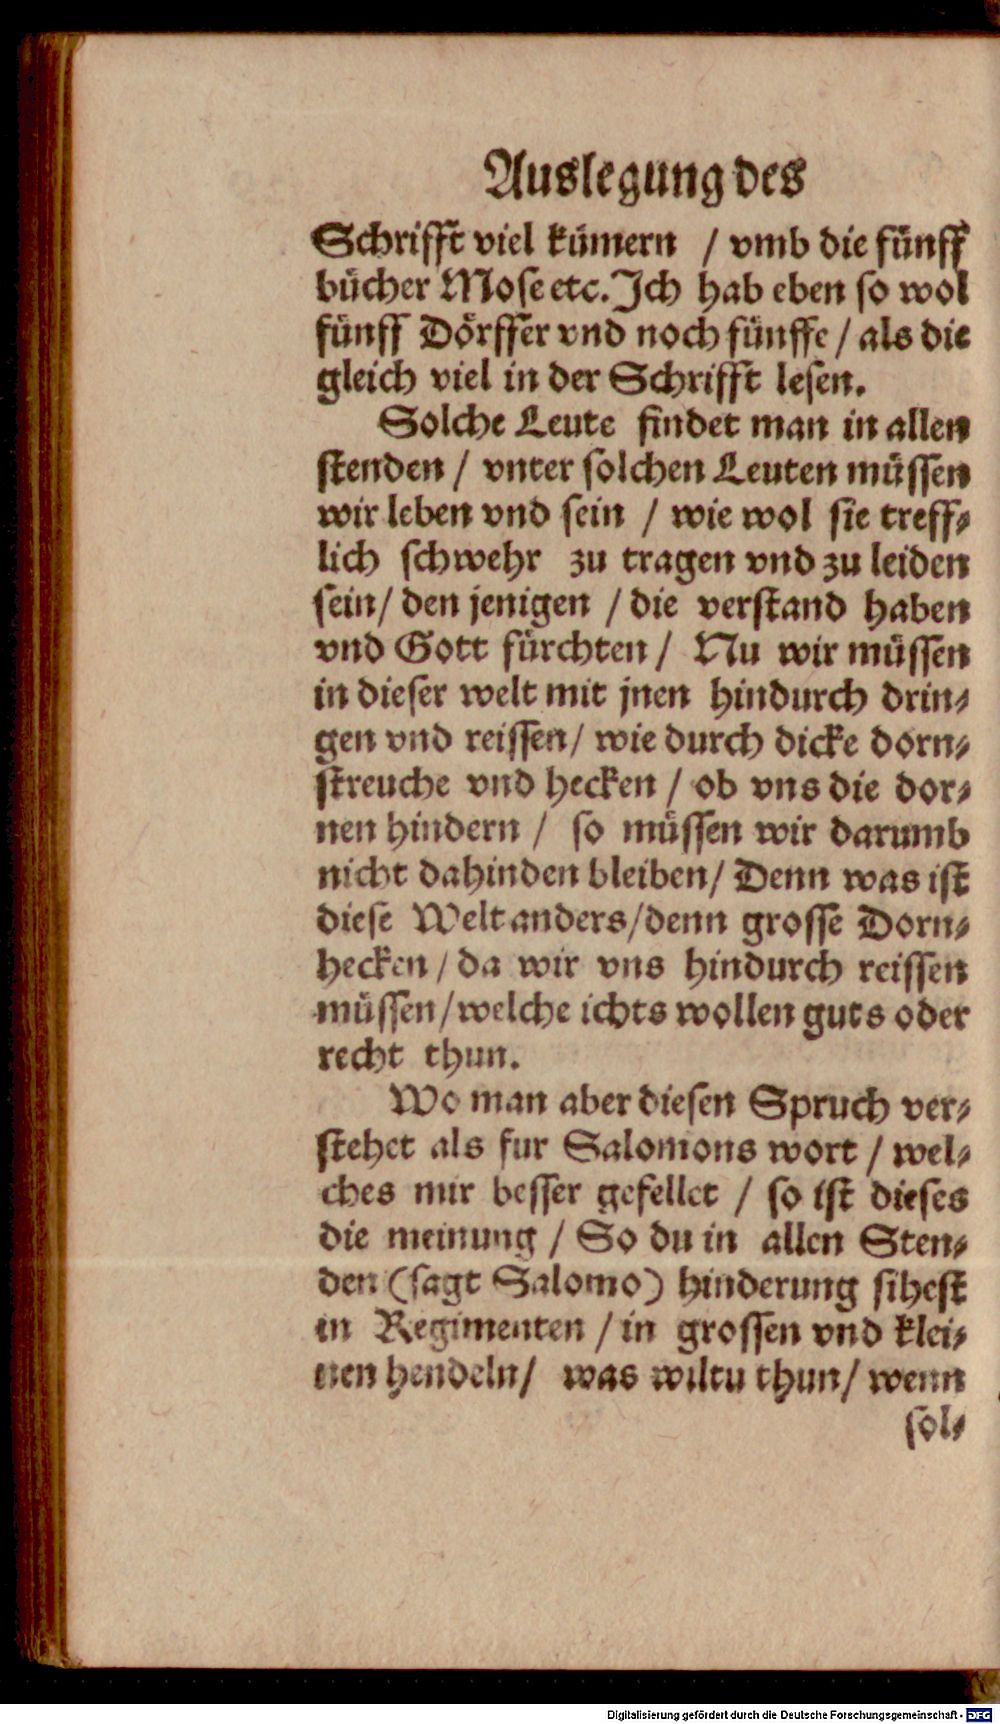 Auslegung des
Schrifft viel kümern / vmb die fünff
bücher Mose etc. Ich hab eben so wol
fünff Dörffer vnd noch fünffe / als die
gleich viel in der Schrifft lesen.
Solche Leute findet man in allen
stenden / vnter solchen Leuten müssen
wir leben vnd sein / wie wol sie treff⸗
lich schwehr zu tragen vnd zu leiden
sein / den jenigen / die verstand haben
vnd Gott fürchten / Nu wir müssen
in dieser welt mit jnen hindurch drin⸗
gen vnd reissen / wie durch dicke dorn⸗
streuche vnd hecken / ob vns die dor⸗
nen hindern / so müssen wir darumb
nicht dahinden bleiben / Denn was ist
diese Welt anders / denn grosse Dorn⸗
hecken / da wir vns hindurch reissen
müssen / welche ichts wollen guts oder
recht thun.
Wo man aber diesen Spruch ver⸗
stehet als fur Salomons wort / wel⸗
ches mir besser gefellet / so ist dieses
die meinung / So du in allen Sten⸗
den (sagt Salomo) hinderung sihest
in Regimenten / in grossen vnd klei⸗
nen hendeln / was wiltu thun / wenn
sol⸗
Digitalisierung gefördert durch die Deutsche Forschungsgemeinschaft - DFG